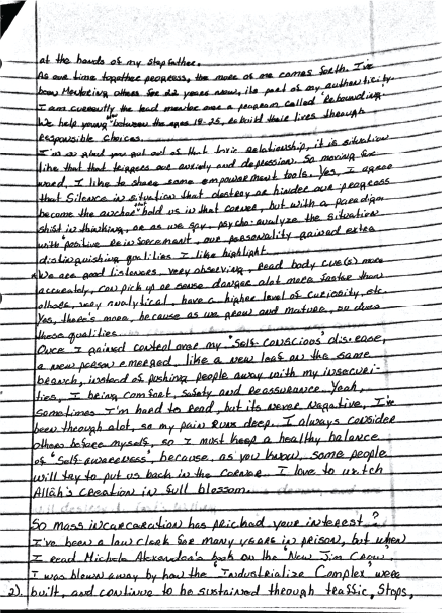 at the hands of my stepfather.
As our time together progress, the more of me comes forth. I've
been Mentoring others for 22 years now, its part of my authenticity.
I am currently the lead mentor over a program called "Rebounding"
We help young men between the ages 18-25, rebuild their lives through
responsible choices.
I'm so glad you got out of that toxic relationship, it is situation
like that that triggers our anxiety and depression. So moving for
word, I like to share some empowerment tools. Yes, I agree
that Silence in situation that destroy or hinder our progress
become the anchor that hold us in that corner, but with a paradigm
shift in thinking, or as we say, psycho-analyze the situation
with "positive Reinforcement, our personality gained extra
distinguishing qualities I like highlight.
We are good listeners, very observing, read body cue(s) more
accurately, can pick up or sense danger alot more faster than
others, very analytical, have a higher level of curiosity, etc.
Yes, there's more, because as we grow and mature, so does
these qualities.
Once I gained control over my "Self-Conscious" dis-ease,
a new person emerged, like a new leaf on the same
branch, instead of pushing people away with my insecuri-
ties, I bring comfort, safety and Reassurance. Yeah,
sometimes I'm hard to read, but its never Negative, I've
been through alot, so my pain runs deep. I always consider
others before myself, so I must keep a healthy balance
of "Self-awareness", because, as you know, some people
will try to put us back in the corner. I love to watch
Allāh's creation in full blossom.
So mass incarcaration has pricked your interest?
I've been a law clerk for many years in prison, but when
I read Michele Alexander's book on the "New Jim Crow"
I was blown away by how the "Industrialize Complex" were
2). built, and continue to be sustained through traffic stops,